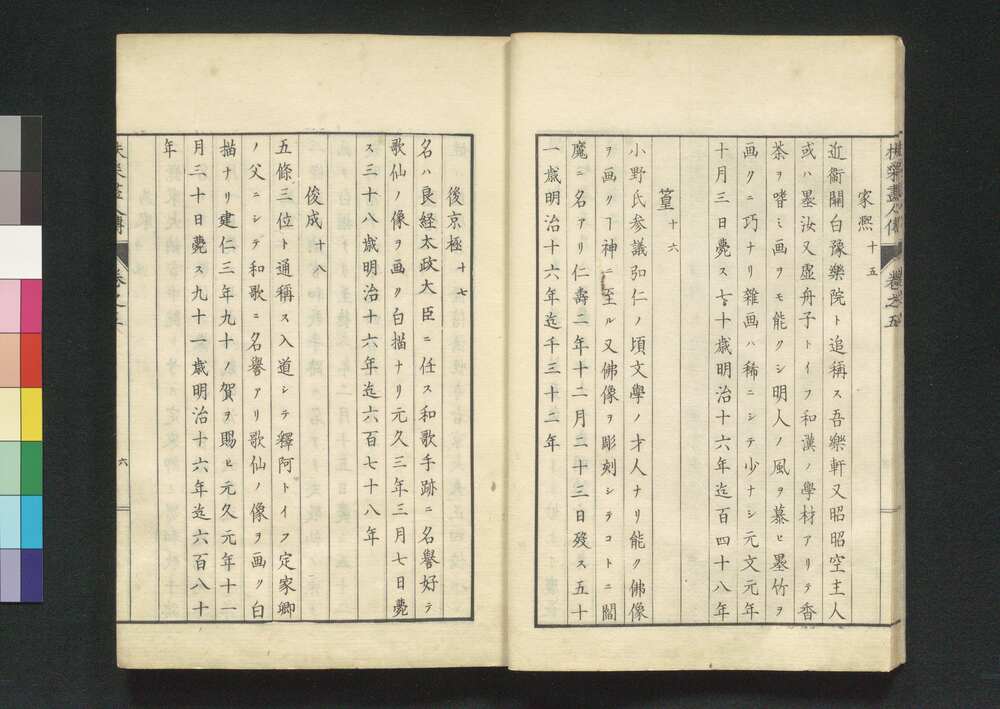 家熈 十五
近衞關白豫樂院ト追稱ス吾樂軒又昭昭空主人
或ハ墨汝又虚舟子トイフ和漢ノ學材アリテ香
茶ヲ嗜ミ画ヲモ能クシ明人ノ風ヲ慕ヒ墨竹ヲ
画クニ巧ナリ雜画ハ稀ニシテ少ナシ元文元年
十月三日薨ス七十歳明治十六年迄百四十八年
篁 十六
小野氏参議弘仁ノ頃文學ノ才人ナリ能ク佛像
ヲ画クヿ神ニ至ル又佛像ヲ彫刻シテコトニ閻
魔ニ名アリ仁壽二年十二月二十三日殁ス五十
一歳明治十六年迄千三十二年
後京極 十七
名ハ良経太政大臣ニ任ス和歌手跡ニ名譽好テ
歌仙ノ像ヲ画ク白描ナリ元久三年三月七日薨
ス三十八歳明治十六年迄六百七十八年
俊成 十八
五條三位ト通稱ス入道シテ釋阿トイフ定家卿
ノ父ニシテ和歌ニ名譽アリ歌仙ノ像ヲ画ク白
描ナリ建仁三年九十ノ賀ヲ賜ヒ元久元年十一
月三十日薨ス九十一歳明治十六年迄六百八十
年
六